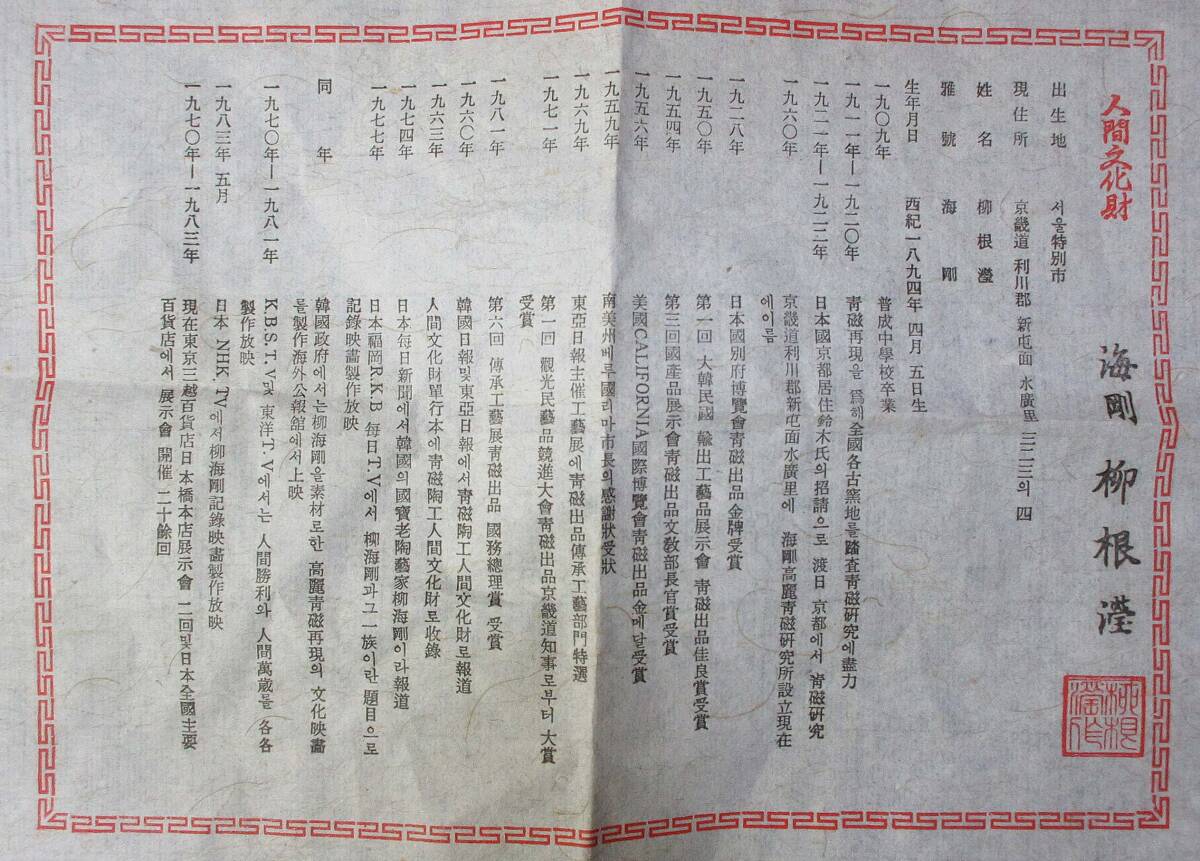 人間文化財
海剛 柳根瀅
出生地 서울特別市
現住所 京畿道 利川郡 新屯面 水廣里 三二三의 四
姓名 柳根瀅
雅號 海剛
生年月日 西紀一八九四年 四月 五日生
一九〇九年 普成中學校卒業
一九一一年―一九二〇年 靑磁再現을 爲해全國各古窯地를踏査靑磁硏究에盡力
一九二一年―一九二二年 日本國京都居住鈴木氏의招請으로 渡日 京都에서 靑磁硏究
一九六〇年 京畿道利川郡新屯面水廣里에 海剛高麗靑磁硏究所設立現在
에이름
一九二八年 日本國別府博覽會靑磁出品金牌受賞
一九五〇年 第一回 大韓民國 輸出工藝品展示會 靑磁出品佳良賞受賞
一九五四年 第三回國產品展示會靑磁出品文敎部長官賞受賞
一九五六年 美國CALIFORNIA國際博覽會靑磁出品金메달受賞
一九五九年 南美州베루國리마市長의感謝狀受狀
一九六九年 東亞日報主催工藝展에靑磁出品傳承工藝部門特選
一九七一年 第一回 觀光民藝品競進大會靑磁出品京畿道知事로부터 大賞
受賞
一九八一年 第六回 傳承工藝展靑磁出品 國務總理賞 受賞
一九六〇年 韓國日報및東亞日報에서靑磁陶工人間文化財로報道
一九六三年 人間文化財單行本에靑磁陶工人間文化財로收錄
一九七四年 日本每日新聞에서韓國의國寶老陶藝家柳海剛이라報道
一九七七年 日本福岡R.K.B 每日T.V에서 柳海剛과그一族이란 題目으로
記錄映畵製作放映
同年 韓國政府에서는柳海剛을素材로한 高麗靑磁再現의 文化映畵
를製作海外公報舘에서上映
一九七〇年―一九八一年 K.B.S.T.V및 東洋T.V에서는 人間勝利와 人間萬歲를 各各
製作放映
一九八三年 五月 日本 NHK.TV에서柳海剛記錄映畵製作放映
一九七〇年―一九八三年 現在東京三越百貨店日本橋本店展示會 二回및日本全國主要
百貨店에서 展示會 開催 二十餘回